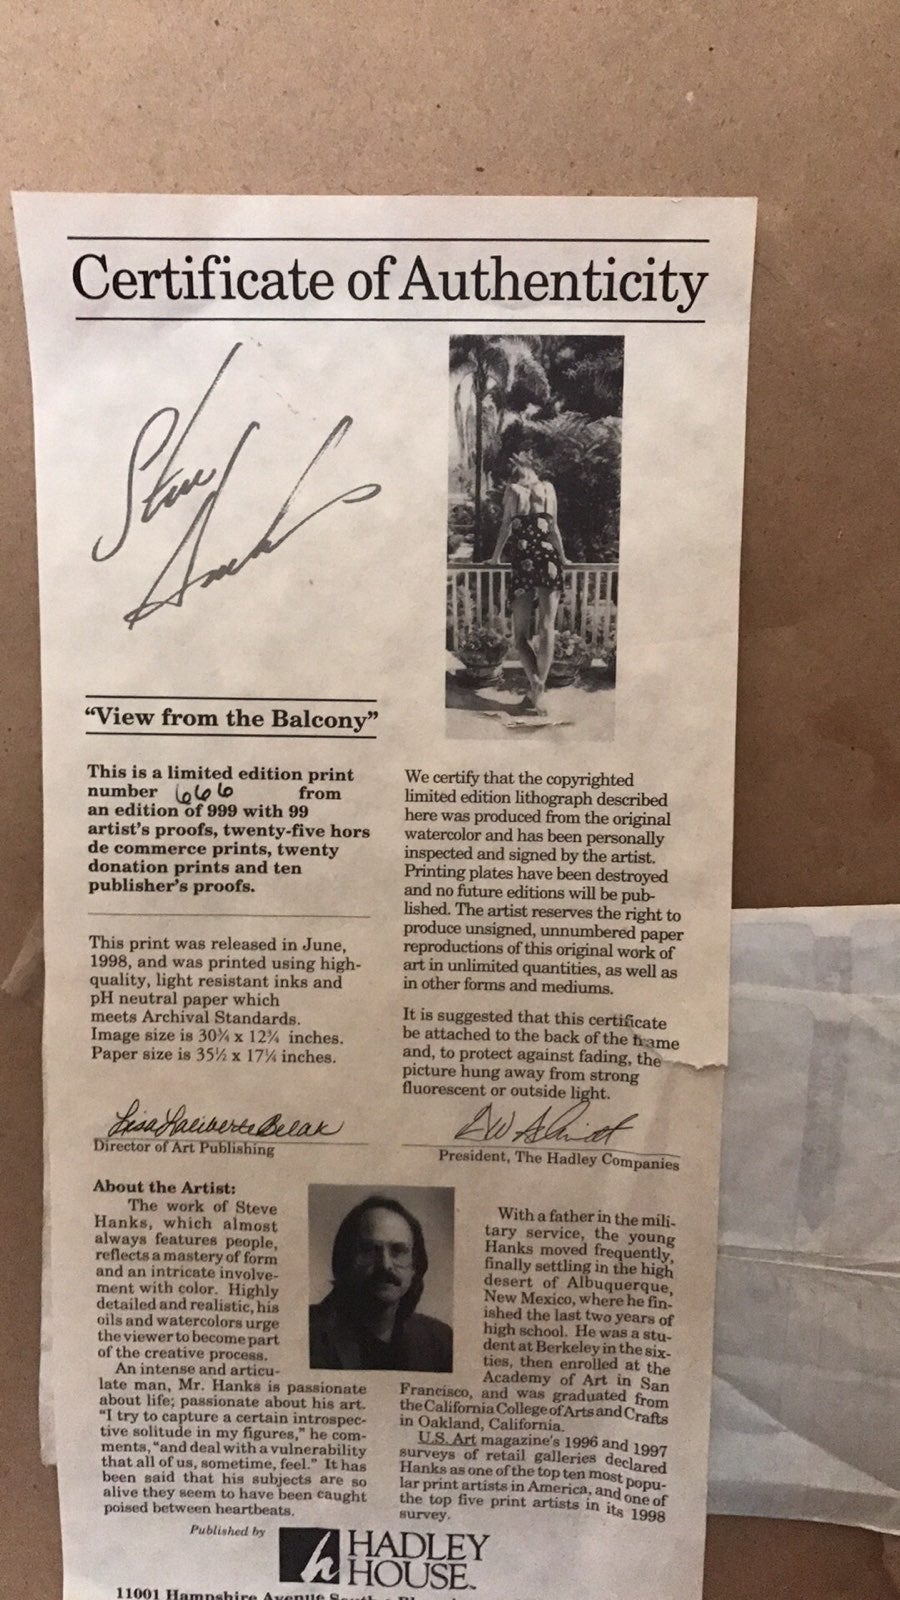 Certificate of Authenticity
Steve
Hanks
“View from the Balcony”
This is a limited edition print
number 666 from
an edition of 999 with 99
artist's proofs, twenty-five hors
de commerce prints, twenty
donation prints and ten
publisher's proofs.
This print was released in June,
1998, and was printed using high-
quality, light resistant inks and
pH neutral paper which
meets Archival Standards.
Image size is 30¾ x 12¾ inches.
Paper size is 35½ x 17¼ inches.
We certify that the copyrighted
limited edition lithograph described
here was produced from the original
watercolor and has been personally
inspected and signed by the artist.
Printing plates have been destroyed
and no future editions will be pub-
lished. The artist reserves the right to
produce unsigned, unnumbered paper
reproductions of this original work of
art in unlimited quantities, as well as
in other forms and mediums.
It is suggested that this certificate
be attached to the back of the frame
and, to protect against fading, the
picture hung away from strong
fluorescent or outside light.
Lisa Laliberte Belak
Director of Art Publishing
President, The Hadley Companies
About the Artist:
The work of Steve
Hanks, which almost
always features people,
reflects a mastery of form
and an intricate involve-
ment with color. Highly
detailed and realistic, his
oils and watercolors urge
the viewer to become part
of the creative process.
An intense and articu-
late man, Mr. Hanks is passionate
about life; passionate about his art.
“I try to capture a certain introspec-
tive solitude in my figures,” he com-
ments, “and deal with a vulnerability
that all of us, sometime, feel.” It has
been said that his subjects are so
alive they seem to have been caught
poised between heartbeats.
With a father in the mili-
tary service, the young
Hanks moved frequently,
finally settling in the high
desert of Albuquerque,
New Mexico, where he fin-
ished the last two years of
high school. He was a stu-
dent at Berkeley in the six-
ties, then enrolled at the
Academy of Art in San
Francisco, and was graduated from
the California College of Arts and Crafts
in Oakland, California.
U.S. Art magazine's 1996 and 1997
surveys of retail galleries declared
Hanks as one of the top ten most popu-
lar print artists in America, and one of
the top five print artists in its 1998
survey.
Published by
HADLEY
HOUSE™
11001 Hampshire Avenue